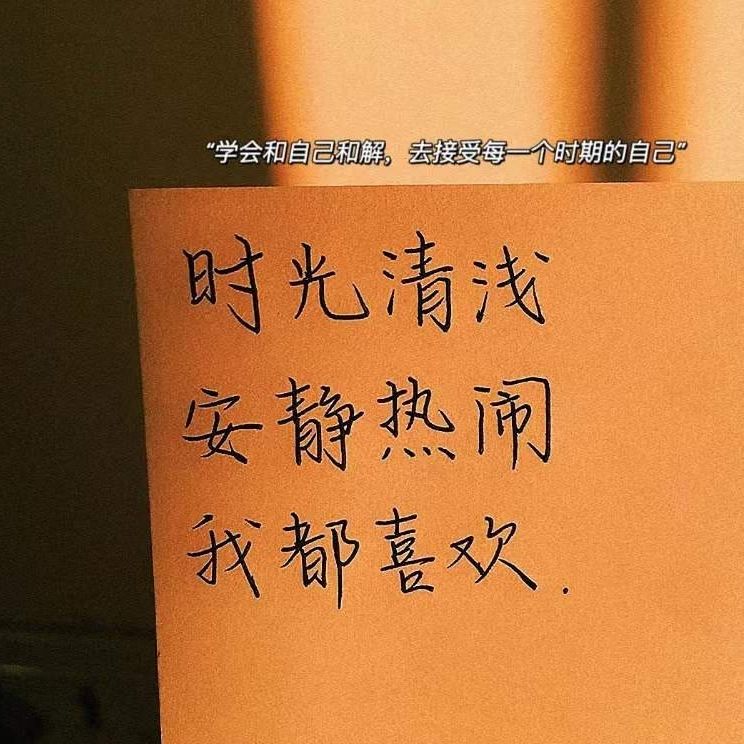 “学会和自己和解，去接受每一个时期的自己”
时光清浅
安静热闹
我都喜欢.